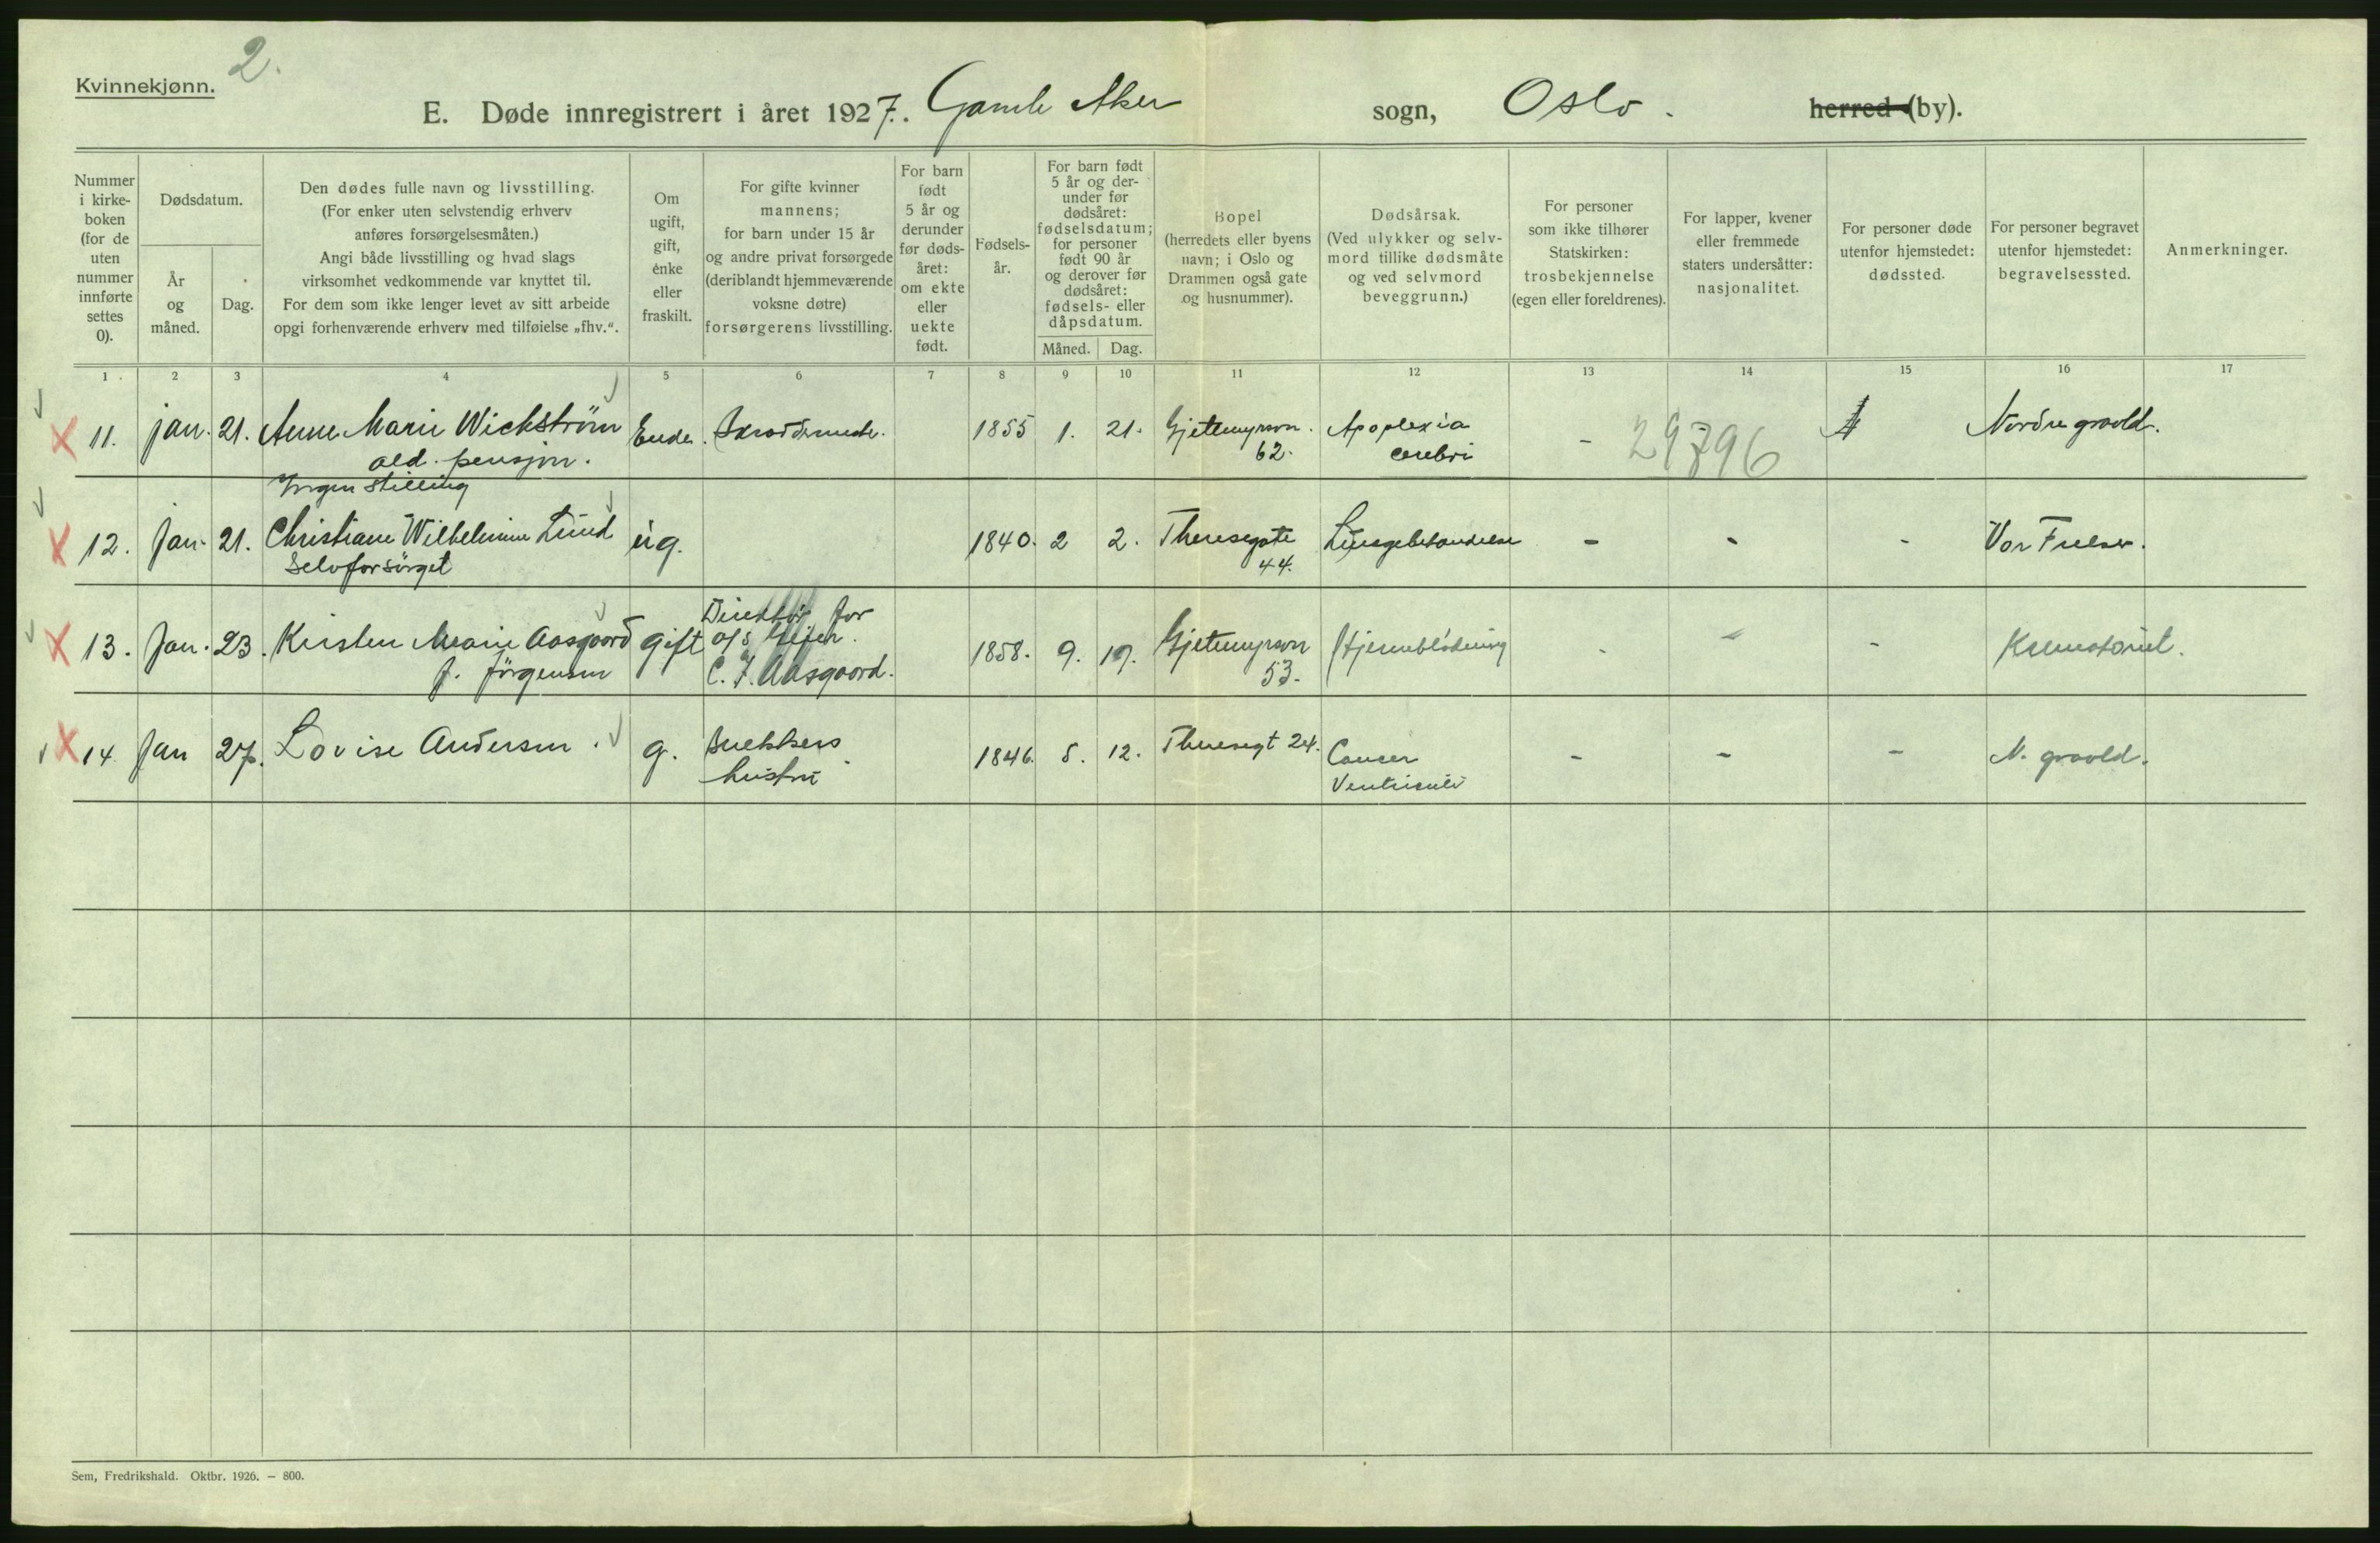 Kvinnekjønn.
2.
E. Døde innregistrert i året 1927. Gamle Aker sogn, Oslo. herred (by).
Nummer i kirke-boken (for de uten nummer innførte settes 0).
Dødsdatum.
År og måned.
Dag.
Den dødes fulle navn og livsstilling.
(For enker uten selvstendig erhverv
anføres forsørgelsesmåten.)
Angi både livsstilling og hvad slags
virksomhet vedkommende var knyttet til.
For dem som ikke lenger levet av sitt arbeide
opgi forhenværende erhverv med tilføielse „fhv.“.
Om ugift, gift, enke eller fraskilt.
For gifte kvinner
mannens;
for barn under 15 år
og andre privat forsørgede
(deriblandt hjemmeværende
voksne døtre)
forsørgerens livsstilling.
For barn født 5 år og derunder før døds-året: om ekte eller uekte født.
Fødsels-år.
For barn født 5 år og der-under før dødsåret: fødselsdatum; for personer født 90 år og derover før dødsåret: fødsels- eller dåpsdatum.
Måned. Dag.
Bopel
(herredets eller byens
navn; i Oslo og
Drammen også gate
og husnummer).
Dødsårsak.
(Ved ulykker og selv-
mord tillike dødsmåte
og ved selvmord
beveggrunn.)
For personer
som ikke tilhører
Statskirken:
trosbekjennelse
(egen eller foreldrenes).
For lapper, kvener
eller fremmede
staters undersåtter:
nasjonalitet.
For personer døde
utenfor hjemstedet:
dødssted.
For personer begravet
utenfor hjemstedet:
begravelsessted.
Anmerkninger.
1 2 3 4 5 6 7 8 9 10 11 12 13 14 15 16 17
11. jan. 21. Anne Marie Wickstrøm Enke. 1855 1. 21. Gjetemyrsvn. Apoplexia - 29796 Nordre gravld.
ald. pensjon. 62. cerebri
Ingen stilling
12. Jan. 21. Christiane Wilhelmine Lund ug. 1840. 2 2. Theresegate Lungebetændelse - - - Vor Frelser.
Selvforsörget 44.
Direktör for
13. Jan. 23. Kirsten Marie Aasgaard gift a/s 1858. 9. 19. Gjetemyrsvn Hjerneblödning - - - Krematoriet.
f. Jörgensen C. J. Aasgaard. 53.
14 Jan 27. Lovise Andersen. g. Snekkers 1846. 5. 12. Theresegt 24. Cancer - - - N. gravld.
hustru Ventriculi
Sem, Fredrikshald. Oktbr. 1926. — 800.